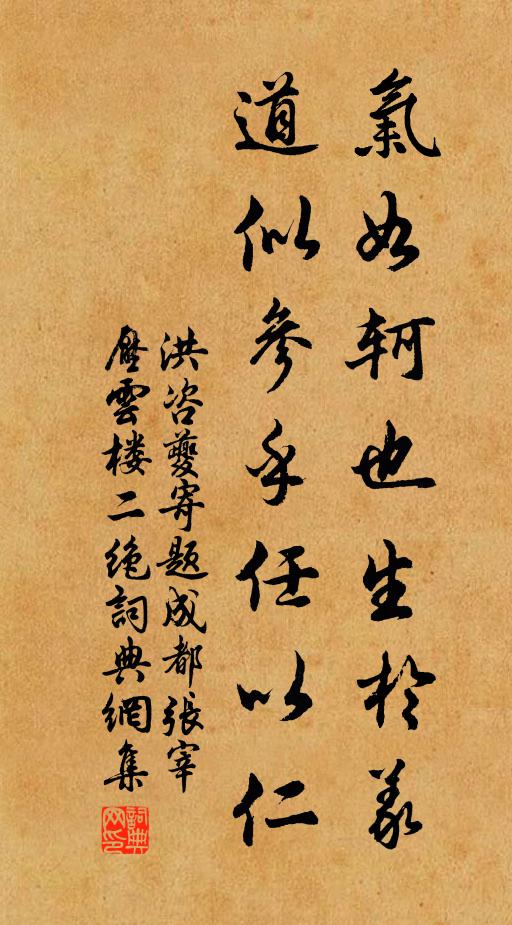 氣如軻也生於義
道似參乎任以仁
洪咨夔寄題成都張宰
壓雲楼二絶詞典網集
詞典
网印